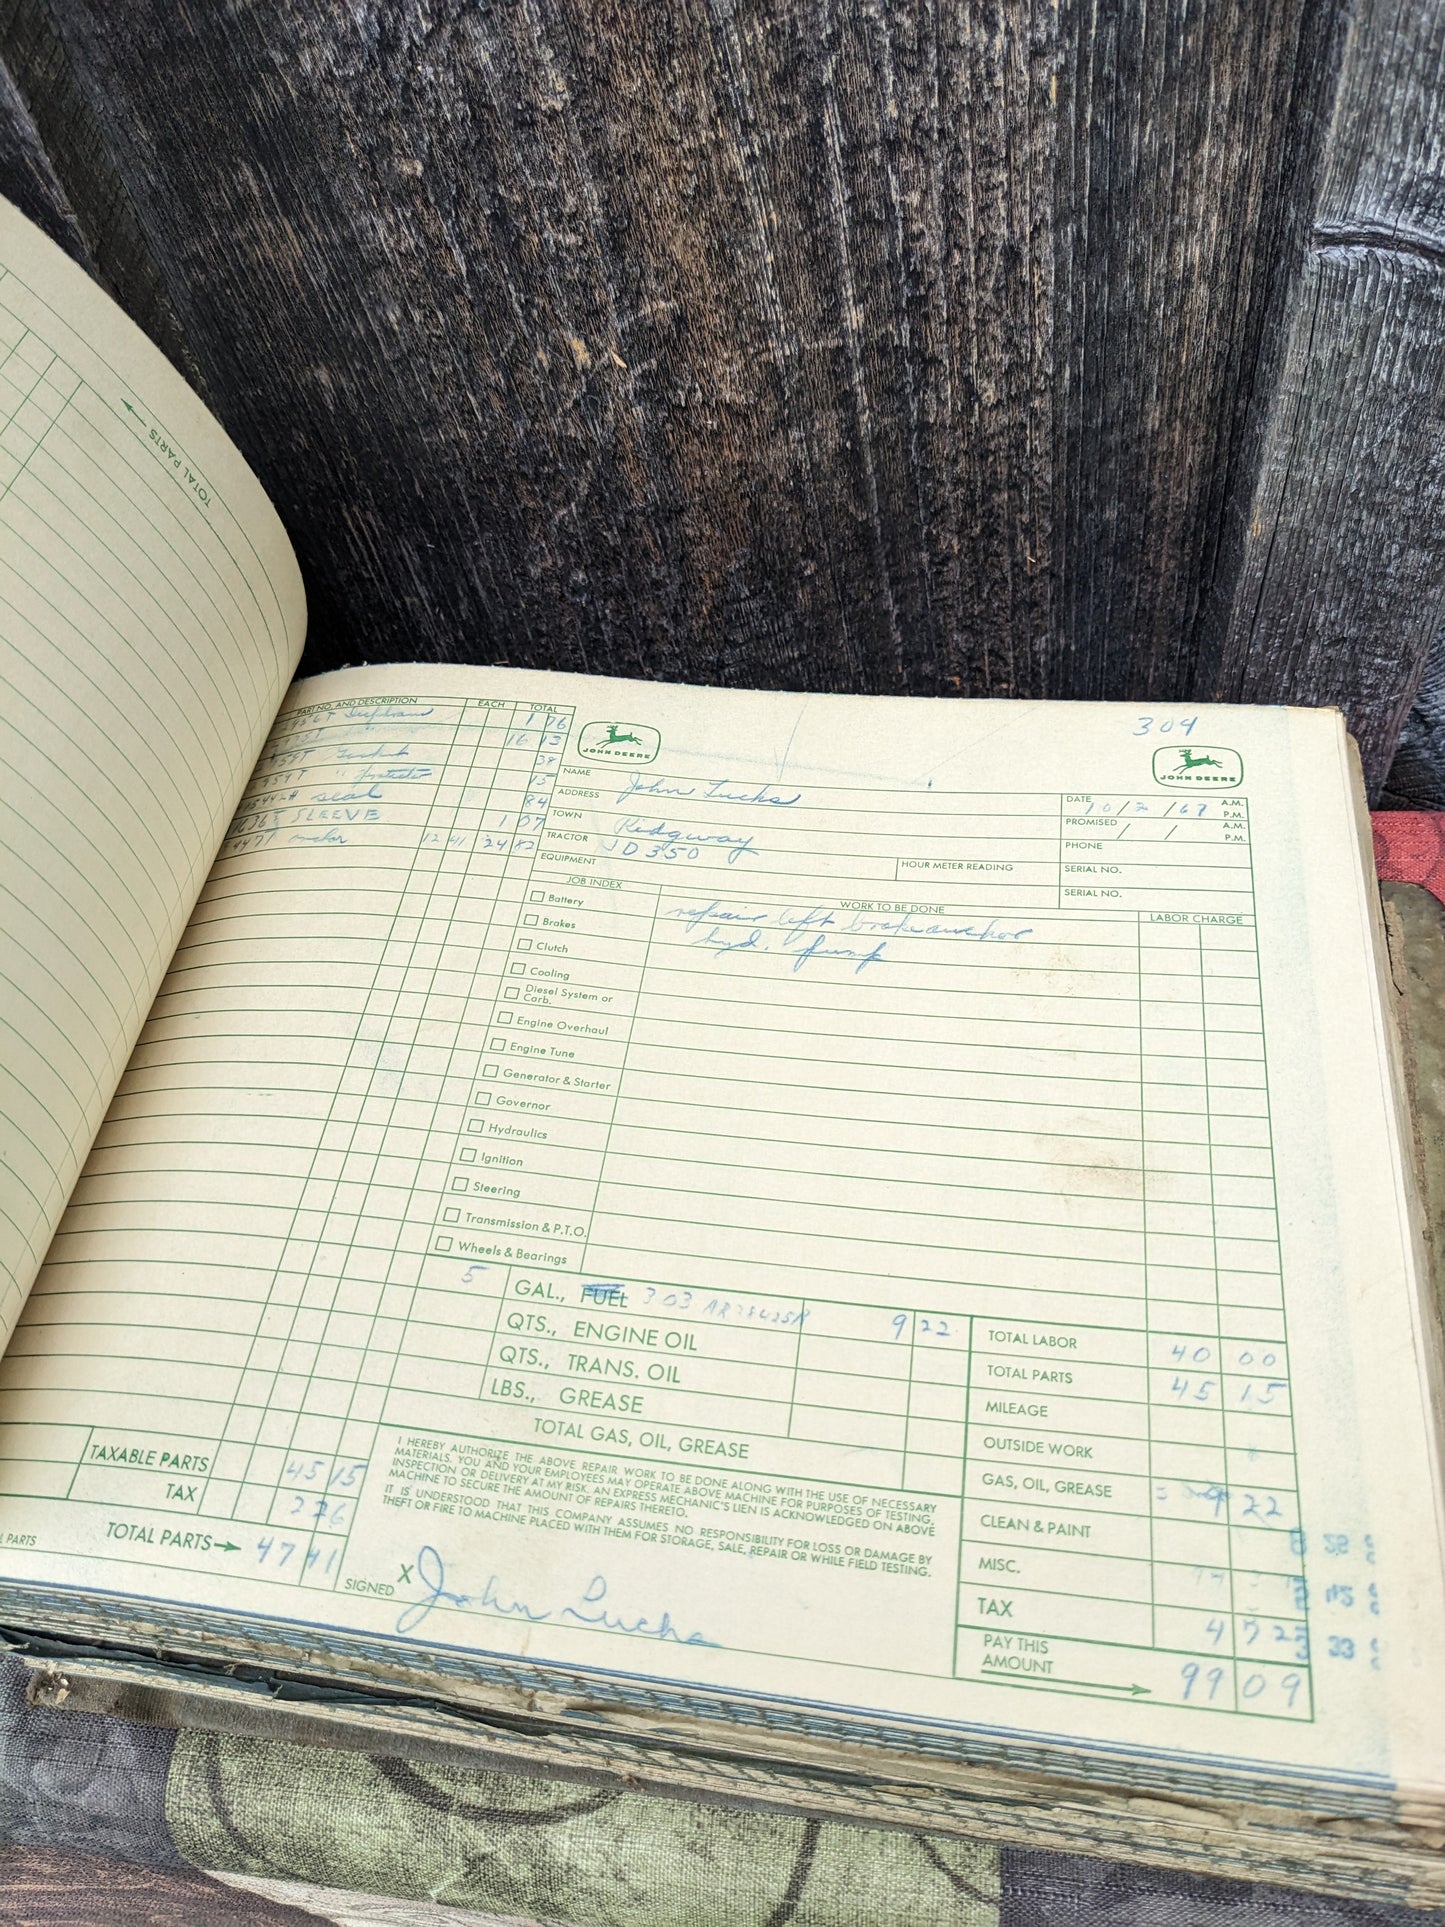 TOTAL PARTS
304
PART NO. AND DESCRIPTION EACH TOTAL
1 76
16 13
38
15
seal 84
SLEEVE 1 07
anchor 12 41 24 82
JOHN DEERE
JOHN DEERE
NAME John Luchs
ADDRESS
TOWN Ridgway
TRACTOR JD 350
EQUIPMENT
HOUR METER READING
DATE 10/2/67 A.M.
P.M.
PROMISED / / A.M.
P.M.
PHONE
SERIAL NO.
SERIAL NO.
JOB INDEX
WORK TO BE DONE
LABOR CHARGE
repair left brake anchor
hyd. pump
Battery
Brakes
Clutch
Cooling
Diesel System or
Carb.
Engine Overhaul
Engine Tune
Generator & Starter
Governor
Hydraulics
Ignition
Steering
Transmission & P.T.O.
Wheels & Bearings
5 GAL., FUEL 303 9 22
QTS., ENGINE OIL
QTS., TRANS. OIL
LBS., GREASE
TOTAL GAS, OIL, GREASE
TOTAL LABOR 40 00
TOTAL PARTS 45 15
MILEAGE
OUTSIDE WORK
GAS, OIL, GREASE 9 22
CLEAN & PAINT
MISC.
TAX 4 72
PAY THIS
AMOUNT 99 09
TAXABLE PARTS 45 15
TAX 2 26
TOTAL PARTS 47 41
PARTS
I HEREBY AUTHORIZE THE ABOVE REPAIR WORK TO BE DONE ALONG WITH THE USE OF NECESSARY
MATERIALS. YOU AND YOUR EMPLOYEES MAY OPERATE ABOVE MACHINE FOR PURPOSES OF TESTING,
INSPECTION OR DELIVERY AT MY RISK. AN EXPRESS MECHANIC'S LIEN IS ACKNOWLEDGED ON ABOVE
MACHINE TO SECURE THE AMOUNT OF REPAIRS THERETO.
IT IS UNDERSTOOD THAT THIS COMPANY ASSUMES NO RESPONSIBILITY FOR LOSS OR DAMAGE BY
THEFT OR FIRE TO MACHINE PLACED WITH THEM FOR STORAGE, SALE, REPAIR OR WHILE FIELD TESTING.
SIGNED X John Luchs